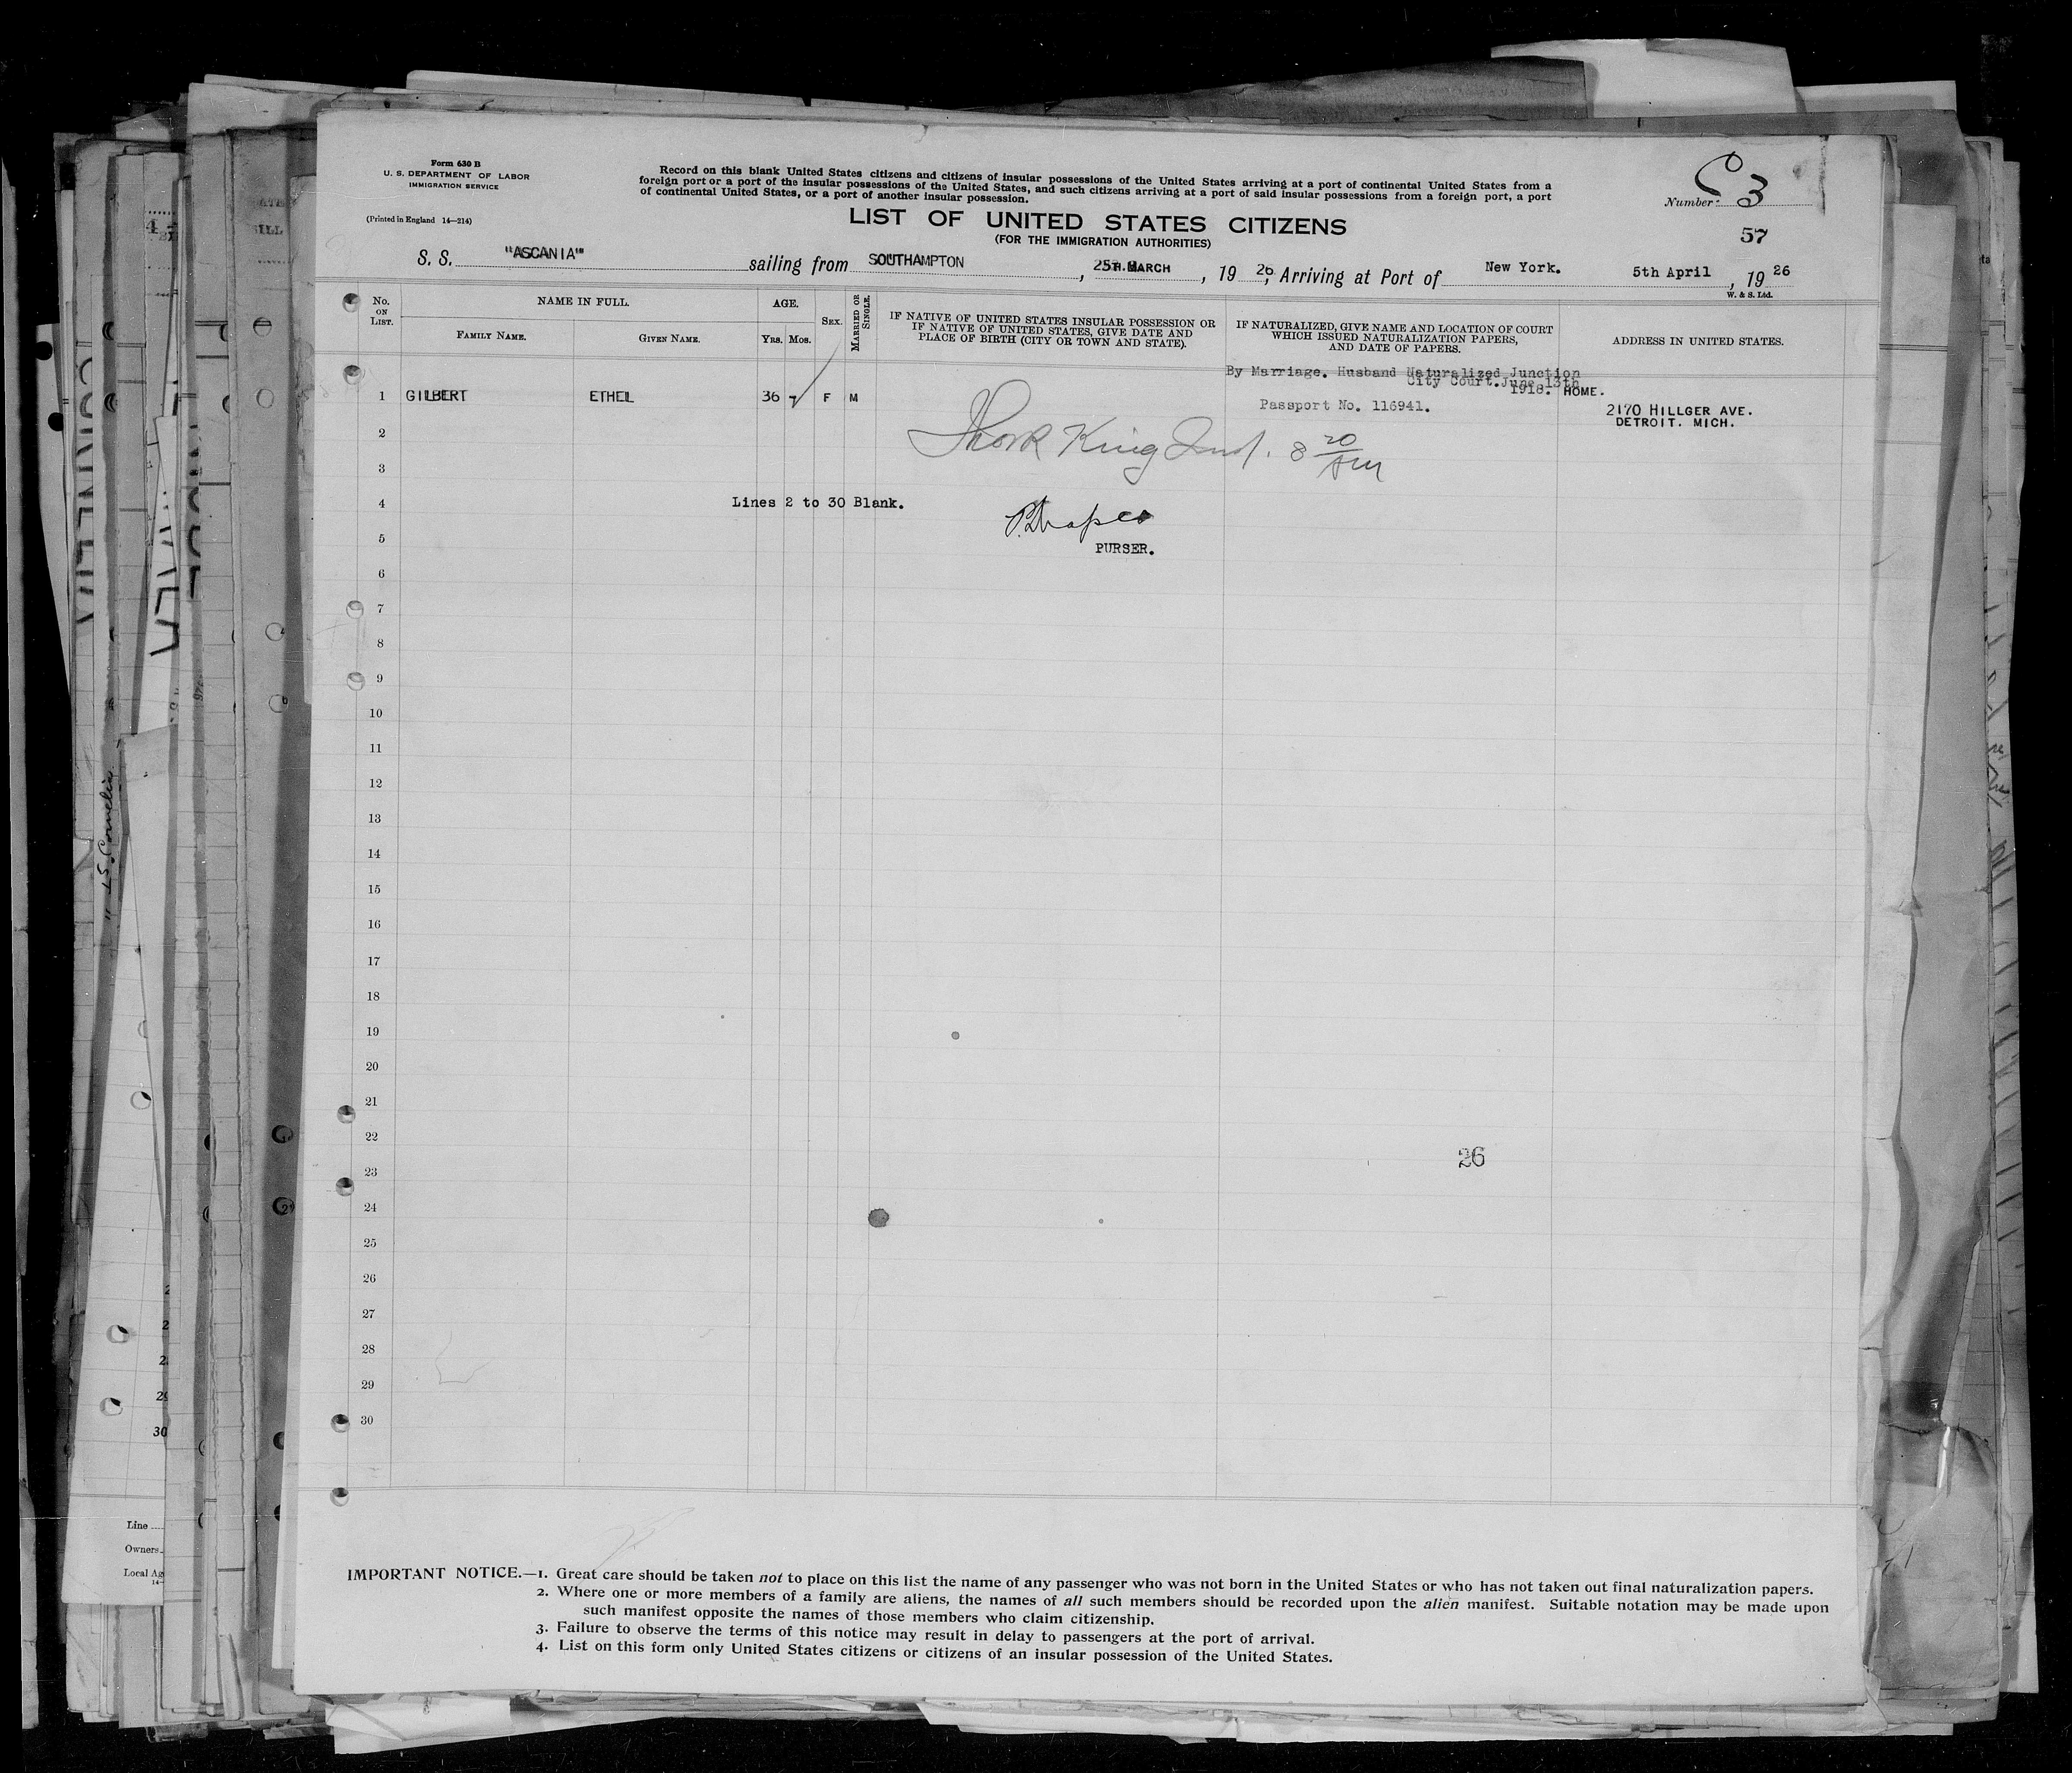 Form 630 B
U. S. DEPARTMENT OF LABOR
IMMIGRATION SERVICE
(Printed in England 14—214)
Record on this blank United States citizens and citizens of insular possessions of the United States arriving at a port of continental United States from a
foreign port or a port of the insular possessions of the United States, and such citizens arriving at a port of said insular possessions from a foreign port, a port
of continental United States, or a port of another insular possession.
LIST OF UNITED STATES CITIZENS
(FOR THE IMMIGRATION AUTHORITIES)
Number: 3
57
S. S. "ASCANIA" sailing from SOUTHAMPTON, MARCH, 19 26, Arriving at Port of New York. 5th April, 19 26
W. & S. Ltd.
No. ON LIST.
NAME IN FULL.
FAMILY NAME.
GIVEN NAME.
AGE.
Yrs. Mos.
SEX.
MARRIED OR SINGLE.
IF NATIVE OF UNITED STATES INSULAR POSSESSION OR
IF NATIVE OF UNITED STATES, GIVE DATE AND
PLACE OF BIRTH (CITY OR TOWN AND STATE).
IF NATURALIZED, GIVE NAME AND LOCATION OF COURT
WHICH ISSUED NATURALIZATION PAPERS,
AND DATE OF PAPERS.
ADDRESS IN UNITED STATES.
By Marriage. Husband Naturalized Junction
City Court. June 13th
1918. HOME.
1 GILBERT ETHEL 36 F M
Passport No. 116941.
2170 HILLGER AVE.
DETROIT. MICH.
2
King 8 20
3
4 Lines 2 to 30 Blank.
5
PURSER.
6
7
8
9
10
11
12
13
14
15
16
17
18
19
20
21
22
26
23
24
25
26
27
28
29
30
IMPORTANT NOTICE.—1. Great care should be taken not to place on this list the name of any passenger who was not born in the United States or who has not taken out final naturalization papers.
2. Where one or more members of a family are aliens, the names of all such members should be recorded upon the alien manifest. Suitable notation may be made upon
such manifest opposite the names of those members who claim citizenship.
3. Failure to observe the terms of this notice may result in delay to passengers at the port of arrival.
4. List on this form only United States citizens or citizens of an insular possession of the United States.
Line
Owners
Local Ag